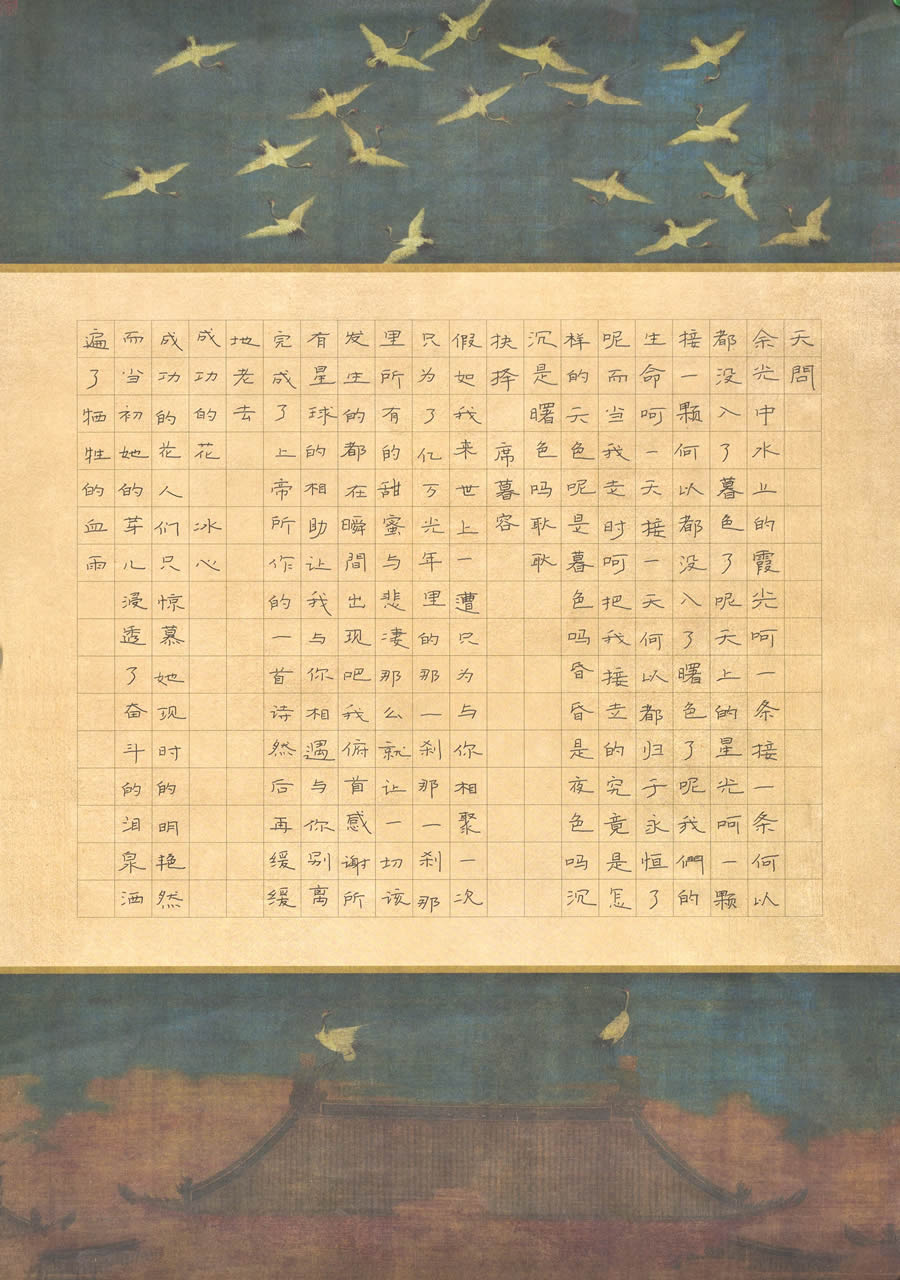 天問
余光中水上的霞光呵一条接一条何以
都没入了暮色了呢天上的星光呵一颗
接一颗何以都没入了曙色了呢我們的
生命呵一天接一天何以都归于永恒了
呢而当我走时呵把我接走的究竟是怎
样的天色呢是暮色吗昏昏是夜色吗沉
沉是曙色吗耿耿
抉择 席暮容
假如我来世上一遭只为与你相聚一次
只为了亿万光年里的那一刹那一刹那
里所有的甜蜜与悲凄那么就让一切该
发生的都在瞬間出现吧我俯首感谢所
有星球的相助让我与你相遇与你别离
完成了上帝所作的一首诗然后再缓缓
地老去
成功的花 冰心
成功的花人们只惊慕她现时的明艳然
而当初她的芽儿浸透了奋斗的泪泉洒
遍了牺牲的血雨